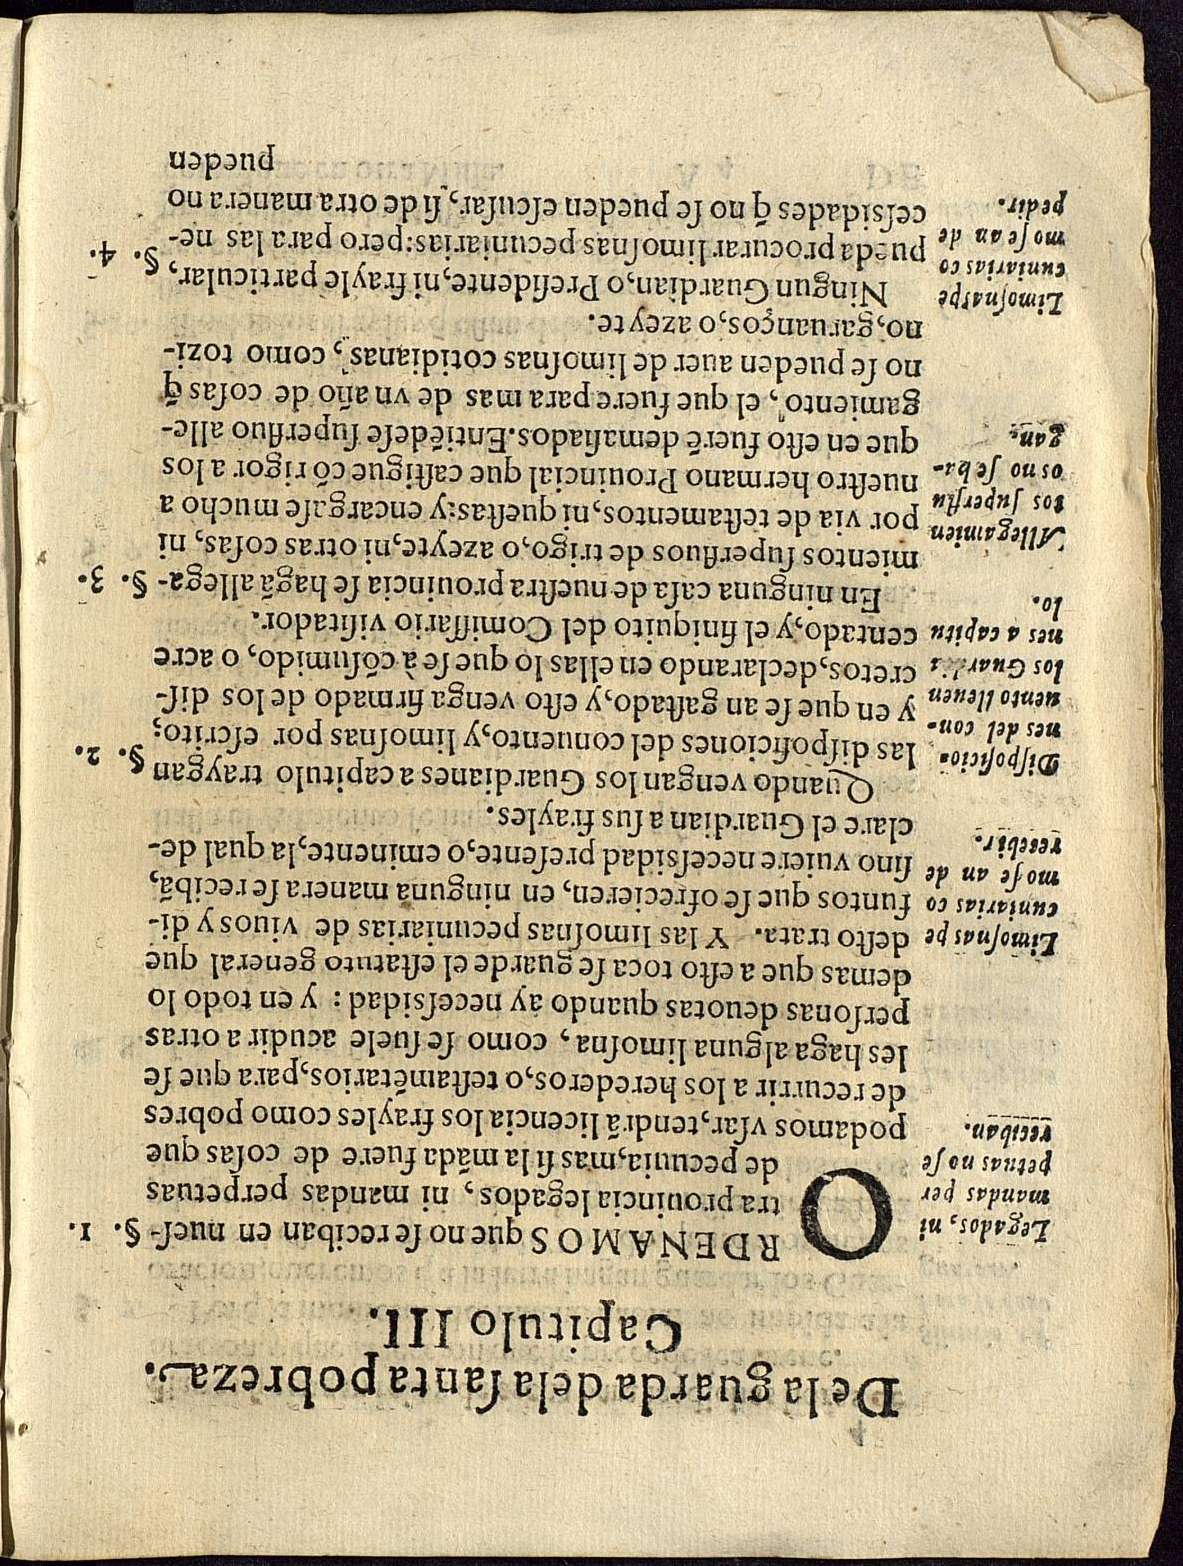 4
De la guarda de la ſanta pobreza.
Capitulo III.
ORDENAMOS que no ſe reciban en nueſ- §. 1.
tra prouincia legados, ni mandas perpetuas
de pecunia, mas ſi la mãda fuere de coſas que
podamos vſar, tendrã licencia los frayles como pobres
de recurrir a los herederos, o teſtamẽtarios, para que ſe
les haga alguna limoſna, como ſe ſuele acudir a otras
perſonas deuotas quando ay neceſsidad: y en todo lo
demas que a eſto toca ſe guarde el eſtatuto general que
deſto trata. Y las limoſnas pecuniarias de viuos y di-
funtos que ſe ofrecieren, en ninguna manera ſe recibã,
ſino vuiere neceſsidad preſente, o eminente, la qual de-
clare el Guardian a ſus frayles.
Quando vengan los Guardianes a capitulo traygan §. 2.
las diſpoſiciones del conuento, y limoſnas por eſcrito;
y en que ſe an gaſtado, y eſto venga firmado de los diſ-
cretos, declarando en ellas lo que ſe à cõſumido, o acre
centado, y el finiquito del Comiſſario viſitador.
En ninguna caſa de nueſtra prouincia ſe hagã allega- §. 3.
mientos ſuperfluos de trigo, o azeyte, ni otras coſas, ni
por via de teſtamentos, ni queſtas: y encargaſe mucho a
nueſtro hermano Prouincial que caſtigue cõ rigor a los
que en eſto fuerẽ demaſiados. Entiẽdeſe ſuperfluo alle-
gamiento, el que fuere para mas de vn año de coſas q̃
no ſe pueden auer de limoſnas cotidianas, como tozi-
no, garuanços, o azeyte.
Ningun Guardian, o Preſidente, ni frayle particular, §. 4.
pueda procurar limoſnas pecuniarias: pero para las ne-
ceſsidades q̃ no ſe pueden eſcuſar, ſi de otra manera no
pueden
Legados, ni
mandas per
petuas no ſe
reciban.
Limoſnas pe
cuniarias co
mo ſe an de
recebir.
Diſpoſicio-
nes del con-
uento lleuen
los Guardia
nes a capitu
lo.
Allegamien
tos ſuperflu
os no ſe ha-
gan.
Limoſnas pe
cuniarias co
mo ſe an de
pedir.